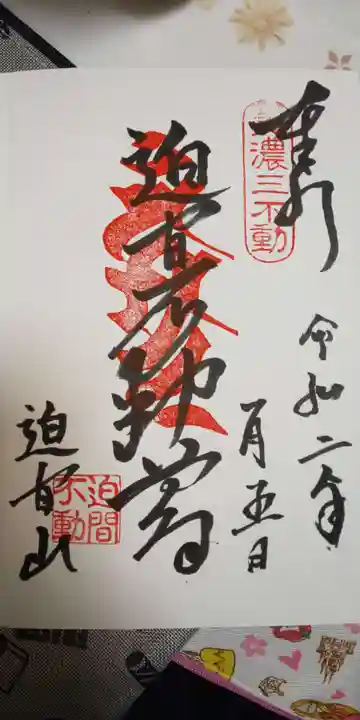 奉拝
美濃三不動
令和二年
一月五日
迫間不動尊
迫間山
迫間
不動